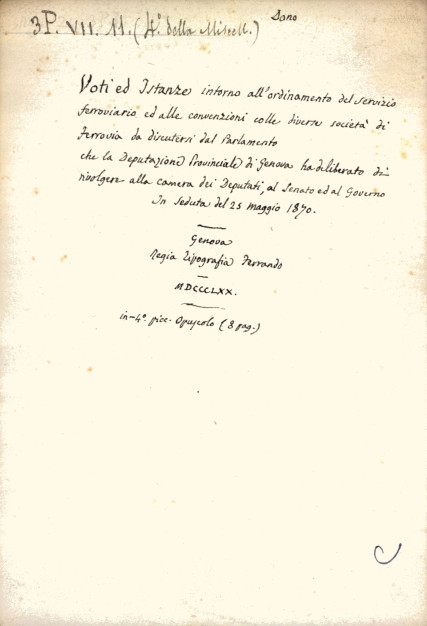 Dono
3P. VII. 11. (4.° della Miscell.)
Voti ed Istanze intorno all'ordinamento del servizio
ferroviario ed alle convenzioni colle diverse società di
Ferrovia da discutersi dal Parlamento
che la Deputazione Provinciale di Genova ha deliberato di
rivolgere alla camera dei Deputati, al Senato ed al Governo
In seduta del 25 maggio 1870.
Genova
Regia Tipografia Ferrando
MDCCCLXX.
in-4.° picc. Opuscolo (8 pag.)